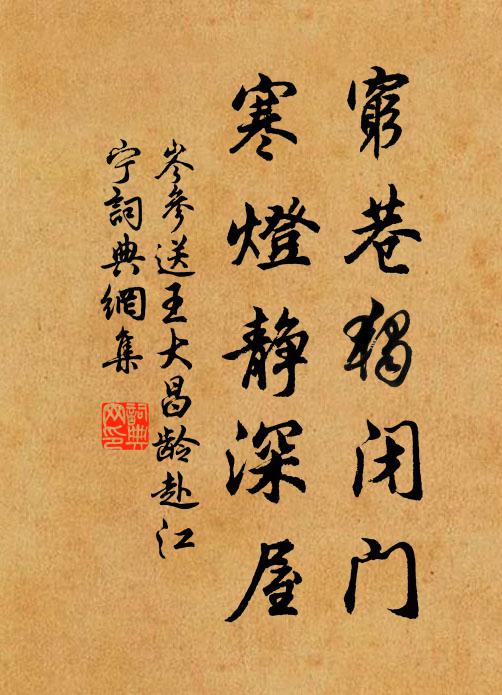 窮巷獨闭门
寒燈静深屋
岑參送王大昌龄赴江
宁詞典網集
詞典
网印